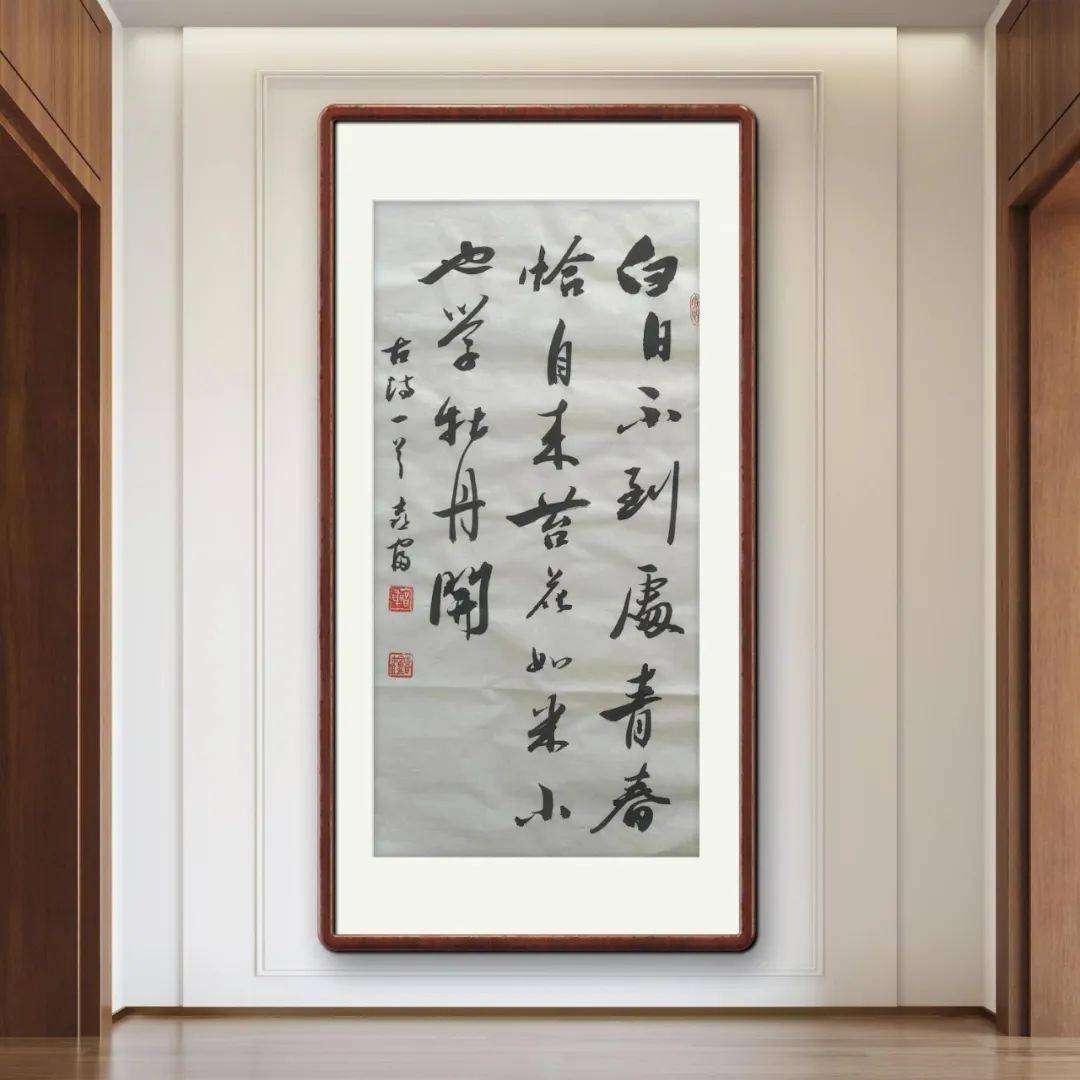 白日不到處青春
恰自来苔花如米小
也学牡丹開
古诗一首